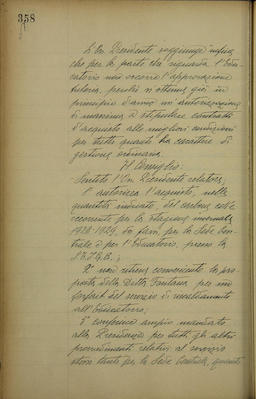 358
L'On. Presidente soggiunge infine
che per la parte che riguarda l'Edu-
catorio non occorre l'approvazione
tutoria, perchè si ottenne già in
principio d'anno un'autorizzazione
di massima a stipulare contratti
d'acquisto alle migliori condizioni
per tutto quanto ha carattere di
gestione ordinaria.
Il Consiglio
Sentito l'On. Presidente relatore,
1° autorizza l'acquisto, nelle
quantità indicate, del carbone coke
occorrente per la stagione invernale
1928-1929, da farsi per la Sede Cen-
trale e per l'Educatorio, presso la
2° non ritiene conveniente la pro-
posta della Ditta Fontana per
del servizio di riscaldamento
all'Educatorio;
3° conferisce ampio mandato
alla Presidenza per tutti gli altri
provvedimenti relativi al servizio
tanto per la Sede Centrale, quanto